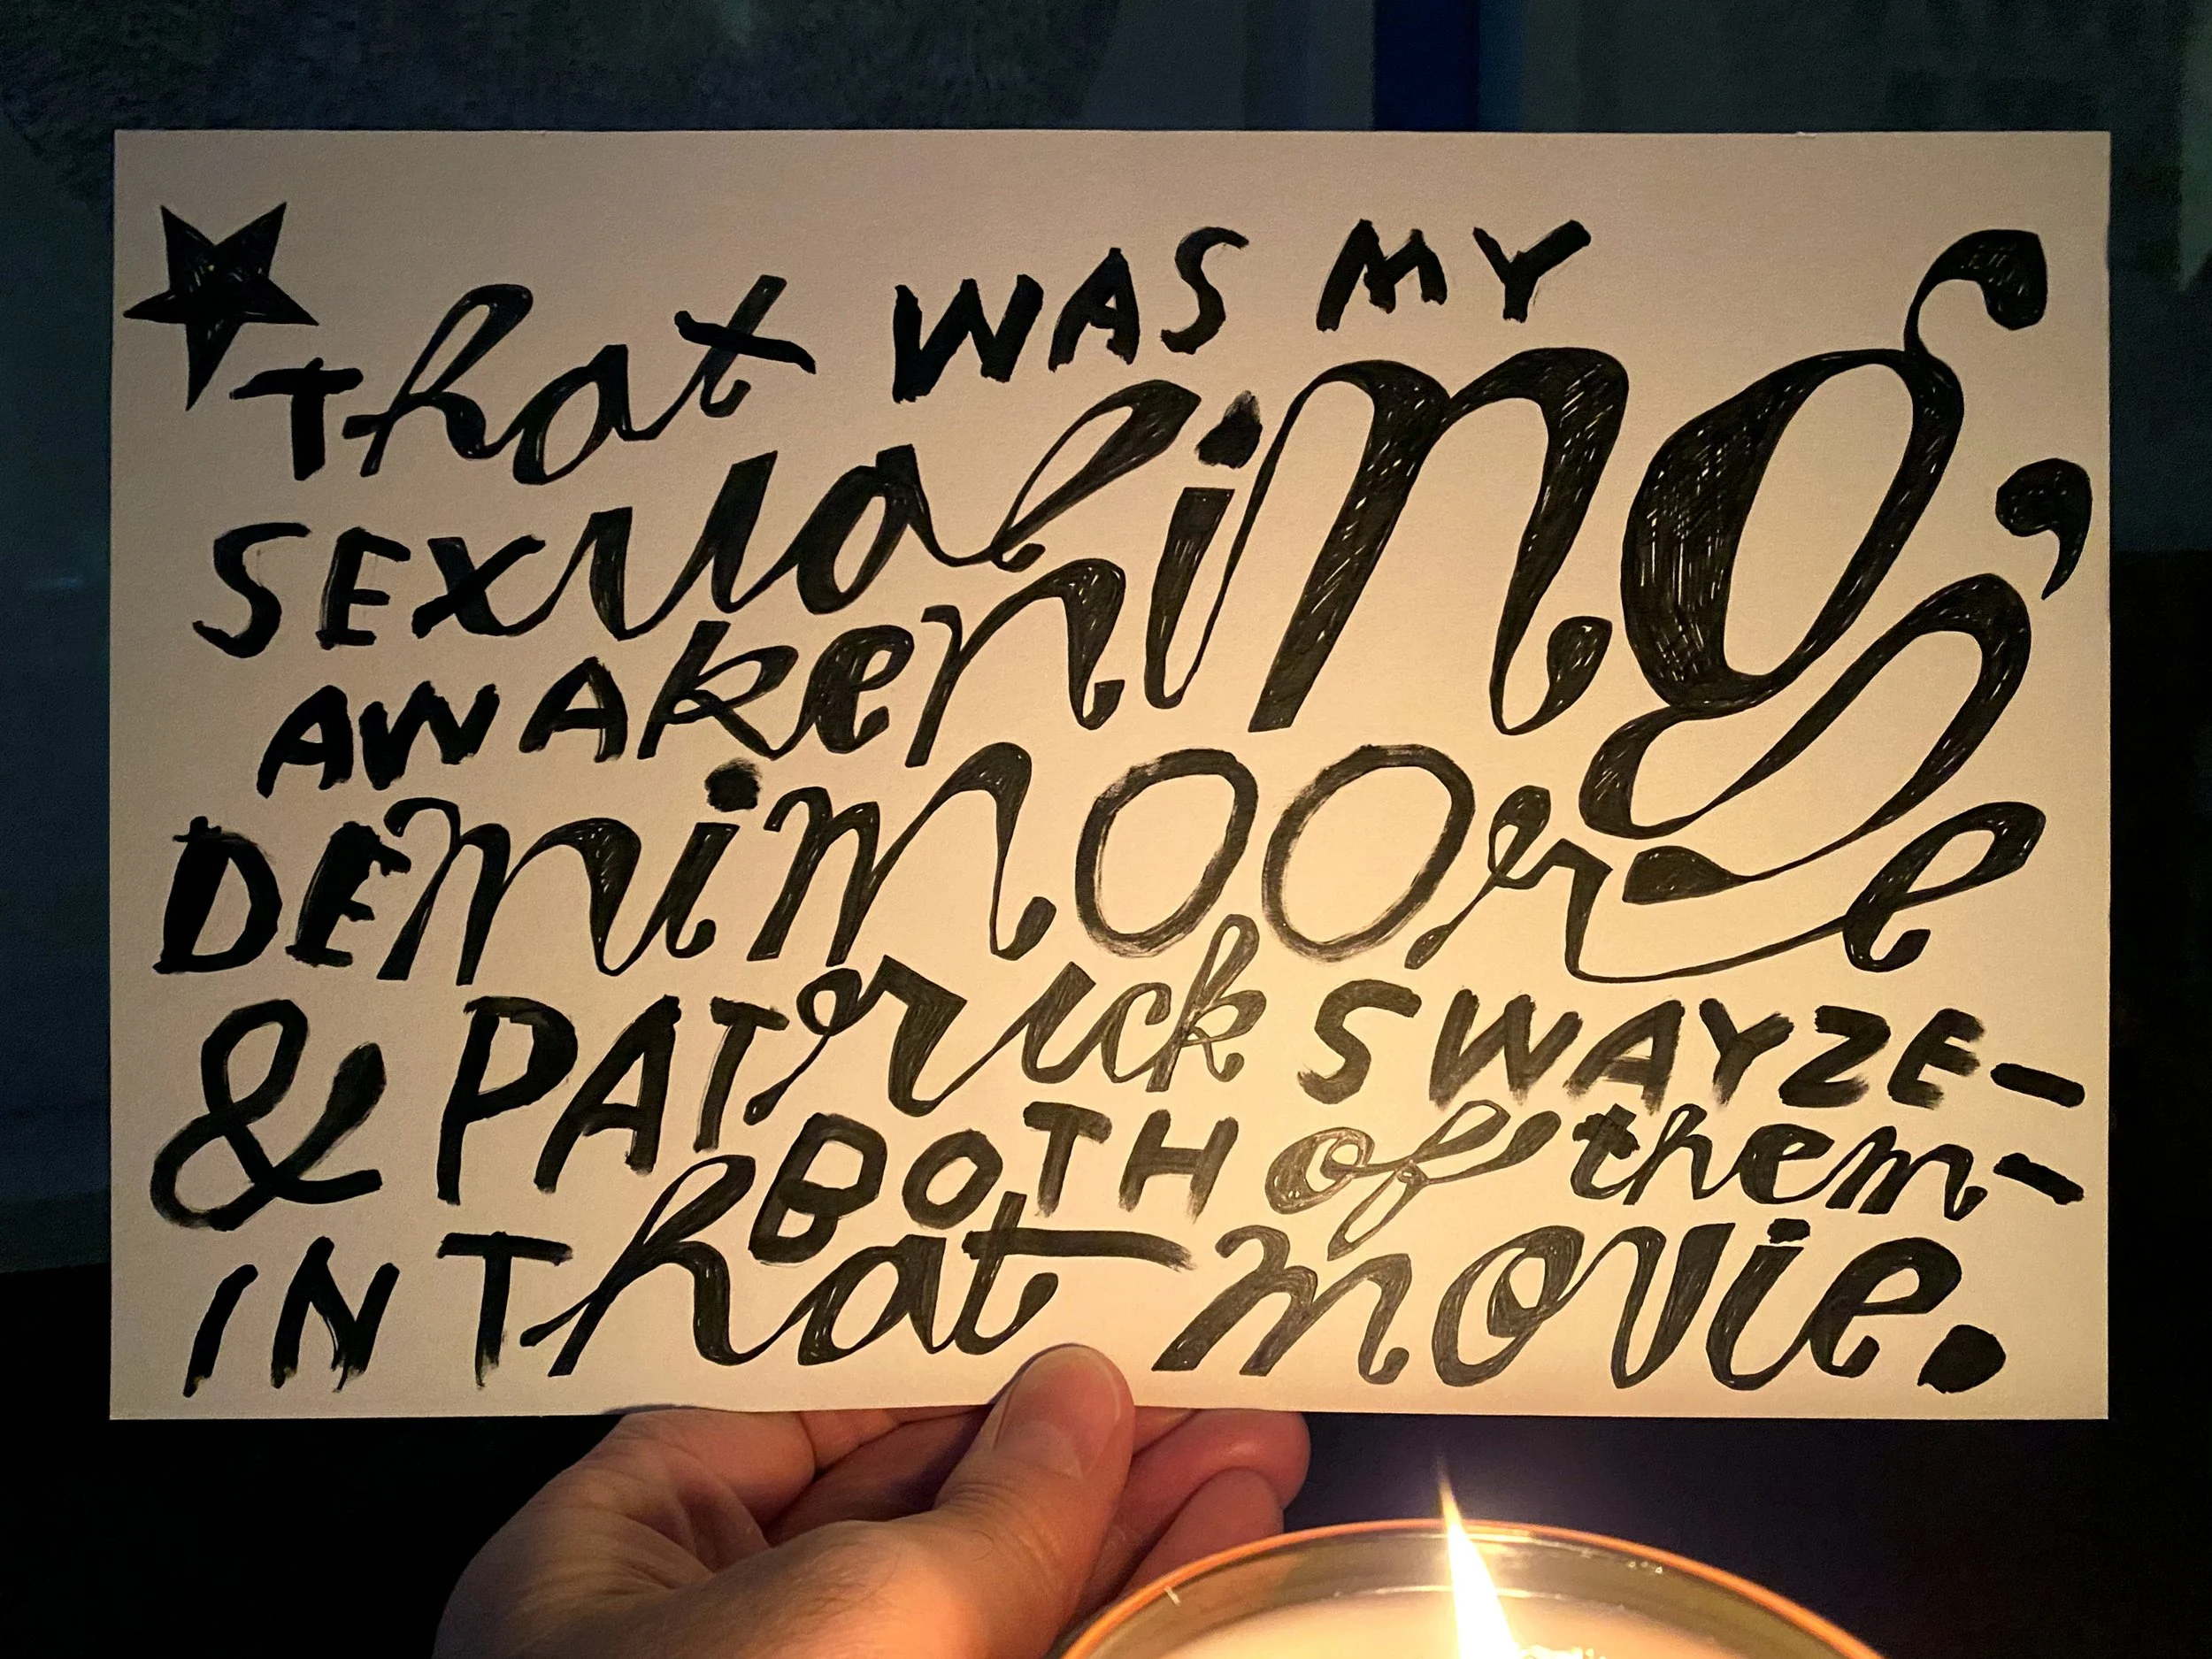 That WAS MY
SExual
AWAkening,
DEmi mOOre
& PATrick SWAYZE–
BOTH of them–
IN That movie.